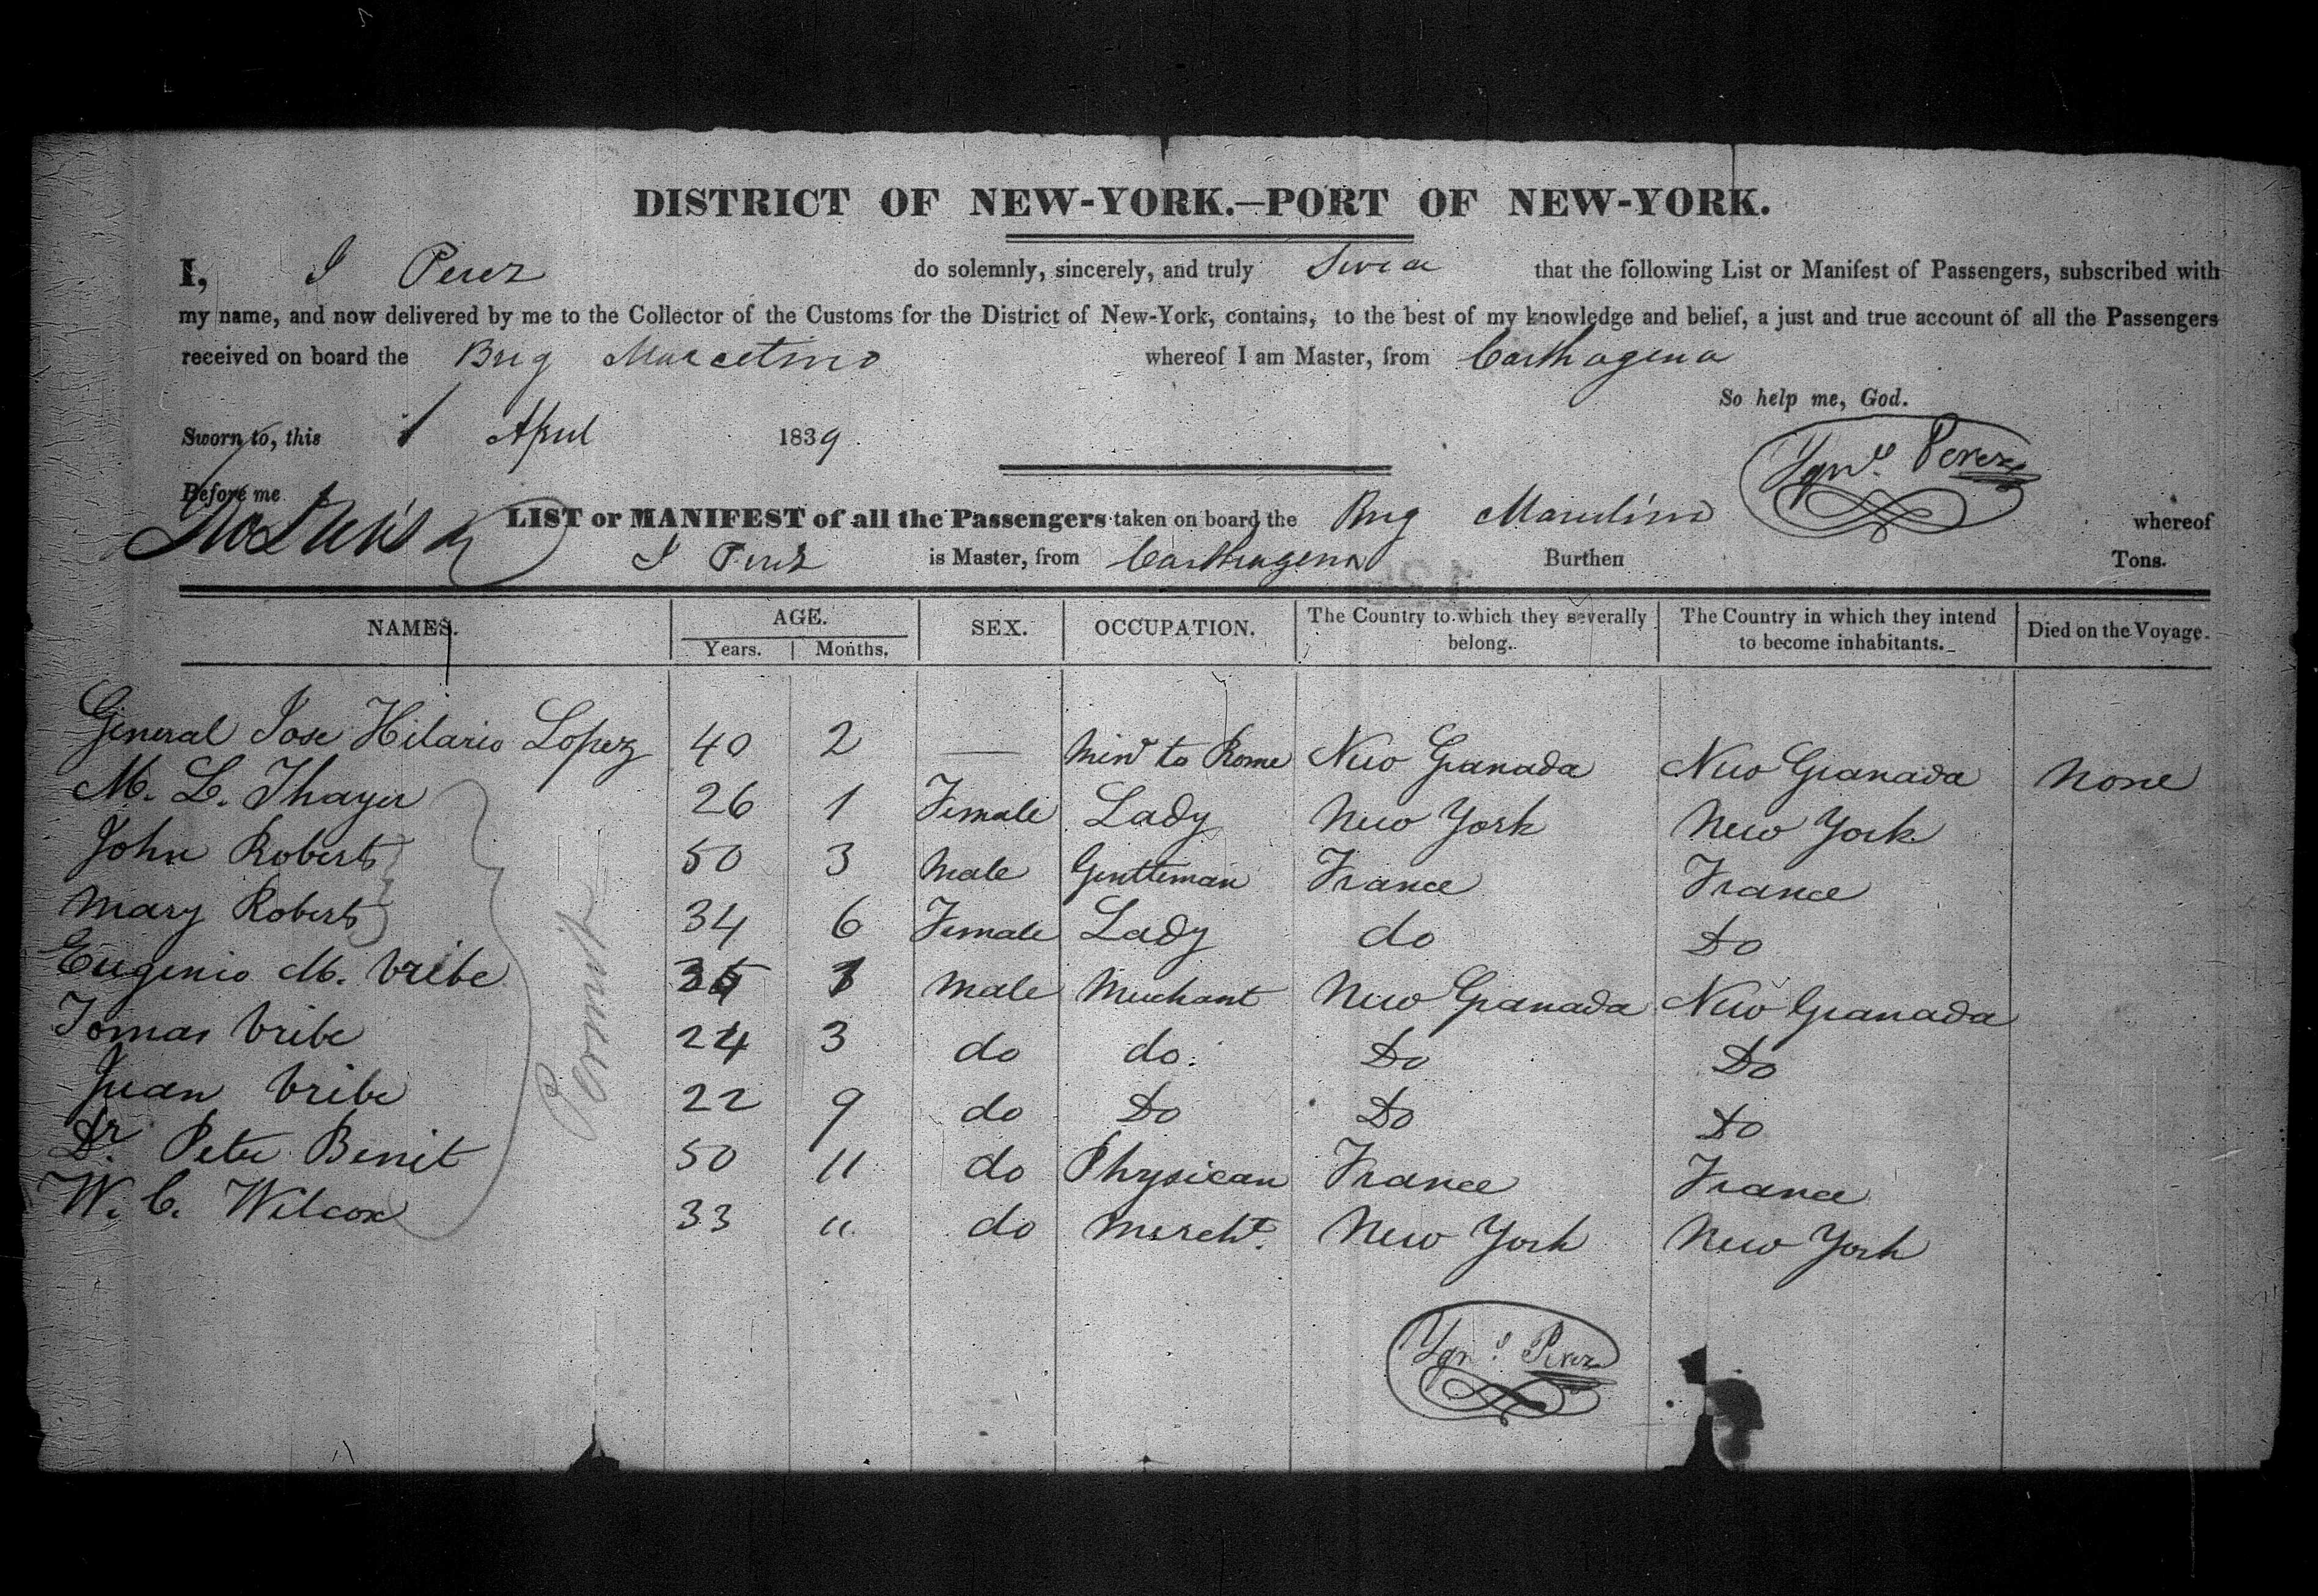 DISTRICT OF NEW-YORK.—PORT OF NEW-YORK.
I, I Perez do solemnly, sincerely, and truly Swear that the following List or Manifest of Passengers, subscribed with
my name, and now delivered by me to the Collector of the Customs for the District of New-York, contains, to the best of my knowledge and belief, a just and true account of all the Passengers
received on board the Brig Marcelino whereof I am Master, from Carthagena
So help me, God.
Sworn to, this 1 April 1839
Ygn.º Perez
Before me
LIST or MANIFEST of all the Passengers taken on board the Brig Marcelino whereof
I Perez is Master, from Carthagena Burthen Tons.
NAMES. AGE. SEX. OCCUPATION. The Country to which they severally belong. The Country in which they intend to become inhabitants. Died on the Voyage.
Years. Months.
General Jose Hilario Lopez 40 2 — Minr to Rome New Granada New Granada None
M. L. Thayer 26 1 Female Lady New York New York
John Roberts 50 3 Male Gentleman France France
Mary Roberts 34 6 Female Lady do Do
Eugenio M. Uribe Male Merchant New Granada New Granada
Tomas Uribe 24 3 do do. Do Do
Juan Uribe 22 9 do Do Do Do
Dr. Peter Benit 50 11 do Physican France France
W. C. Wilcox 33 " do Mercht. New York New York
Permit
Ygn.º Perez